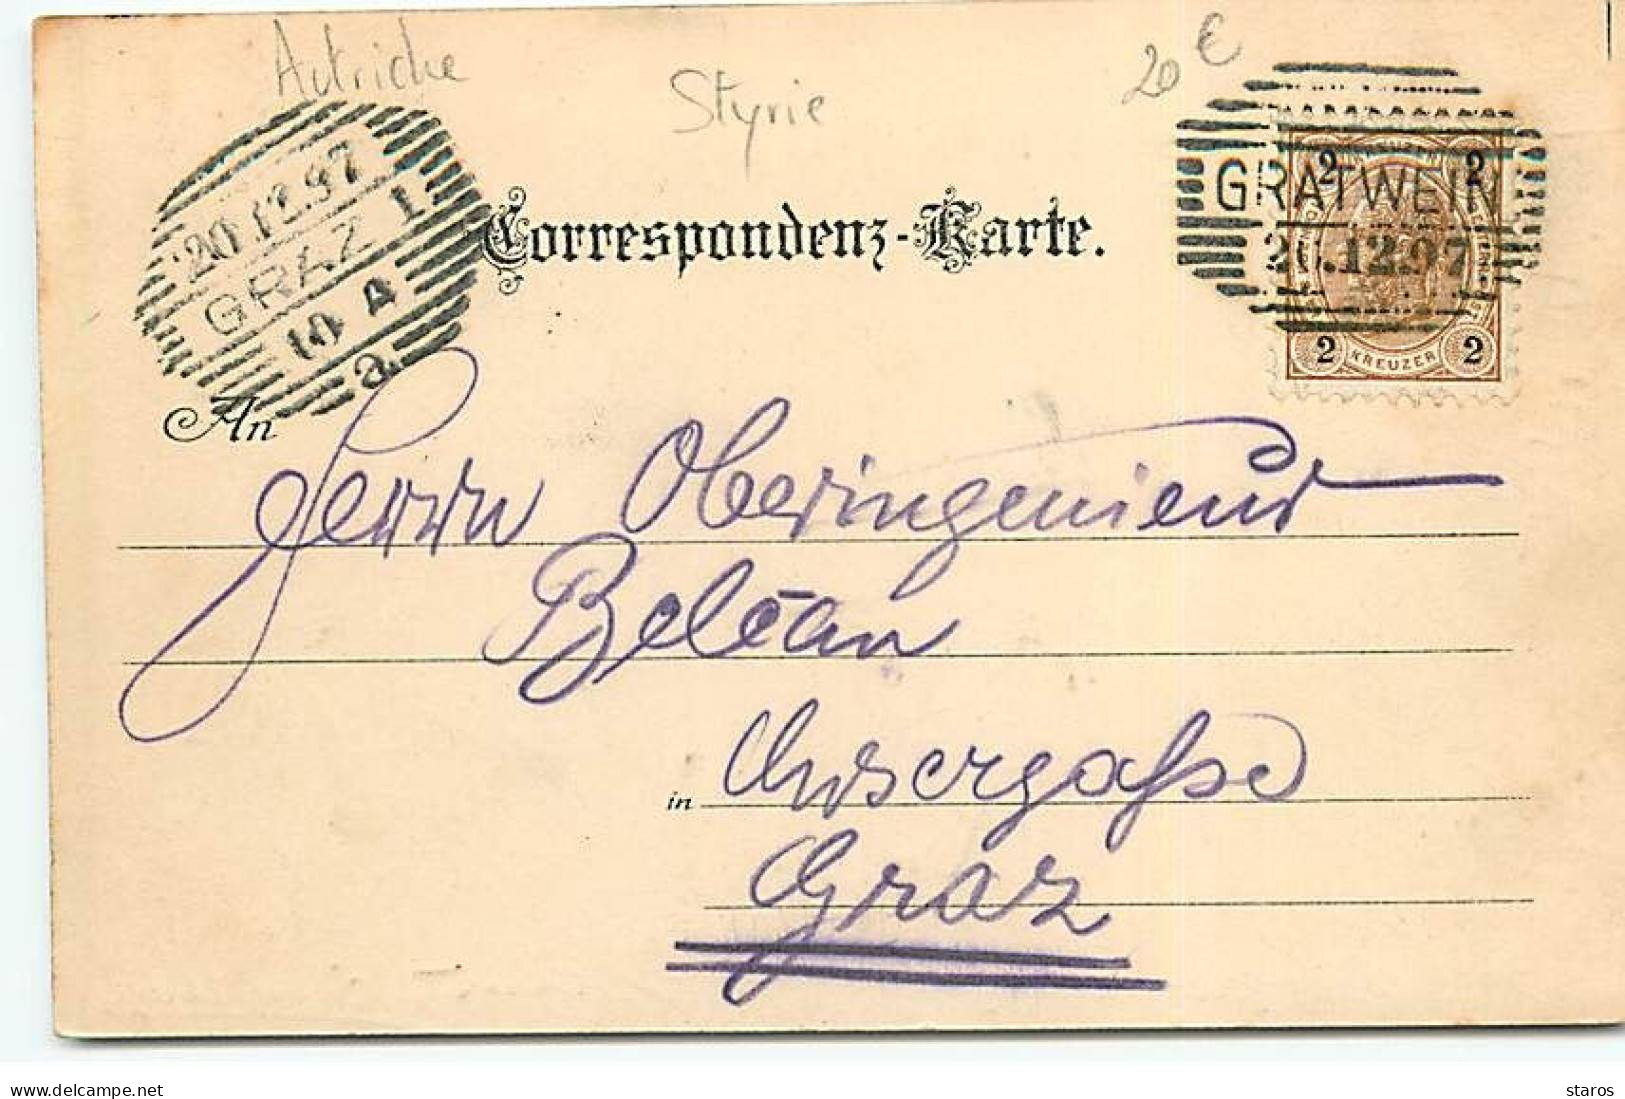 Autriche
Styrie
20 €
20.12.97
GRAZ 1
10 A
a.
GRATWEIN
20.12.97
2 2
2 KREUZER 2
Correspondenz-Karte.
An
Herrn Oberingenieur
Beléan
in
Graz
delcampe.net
staros